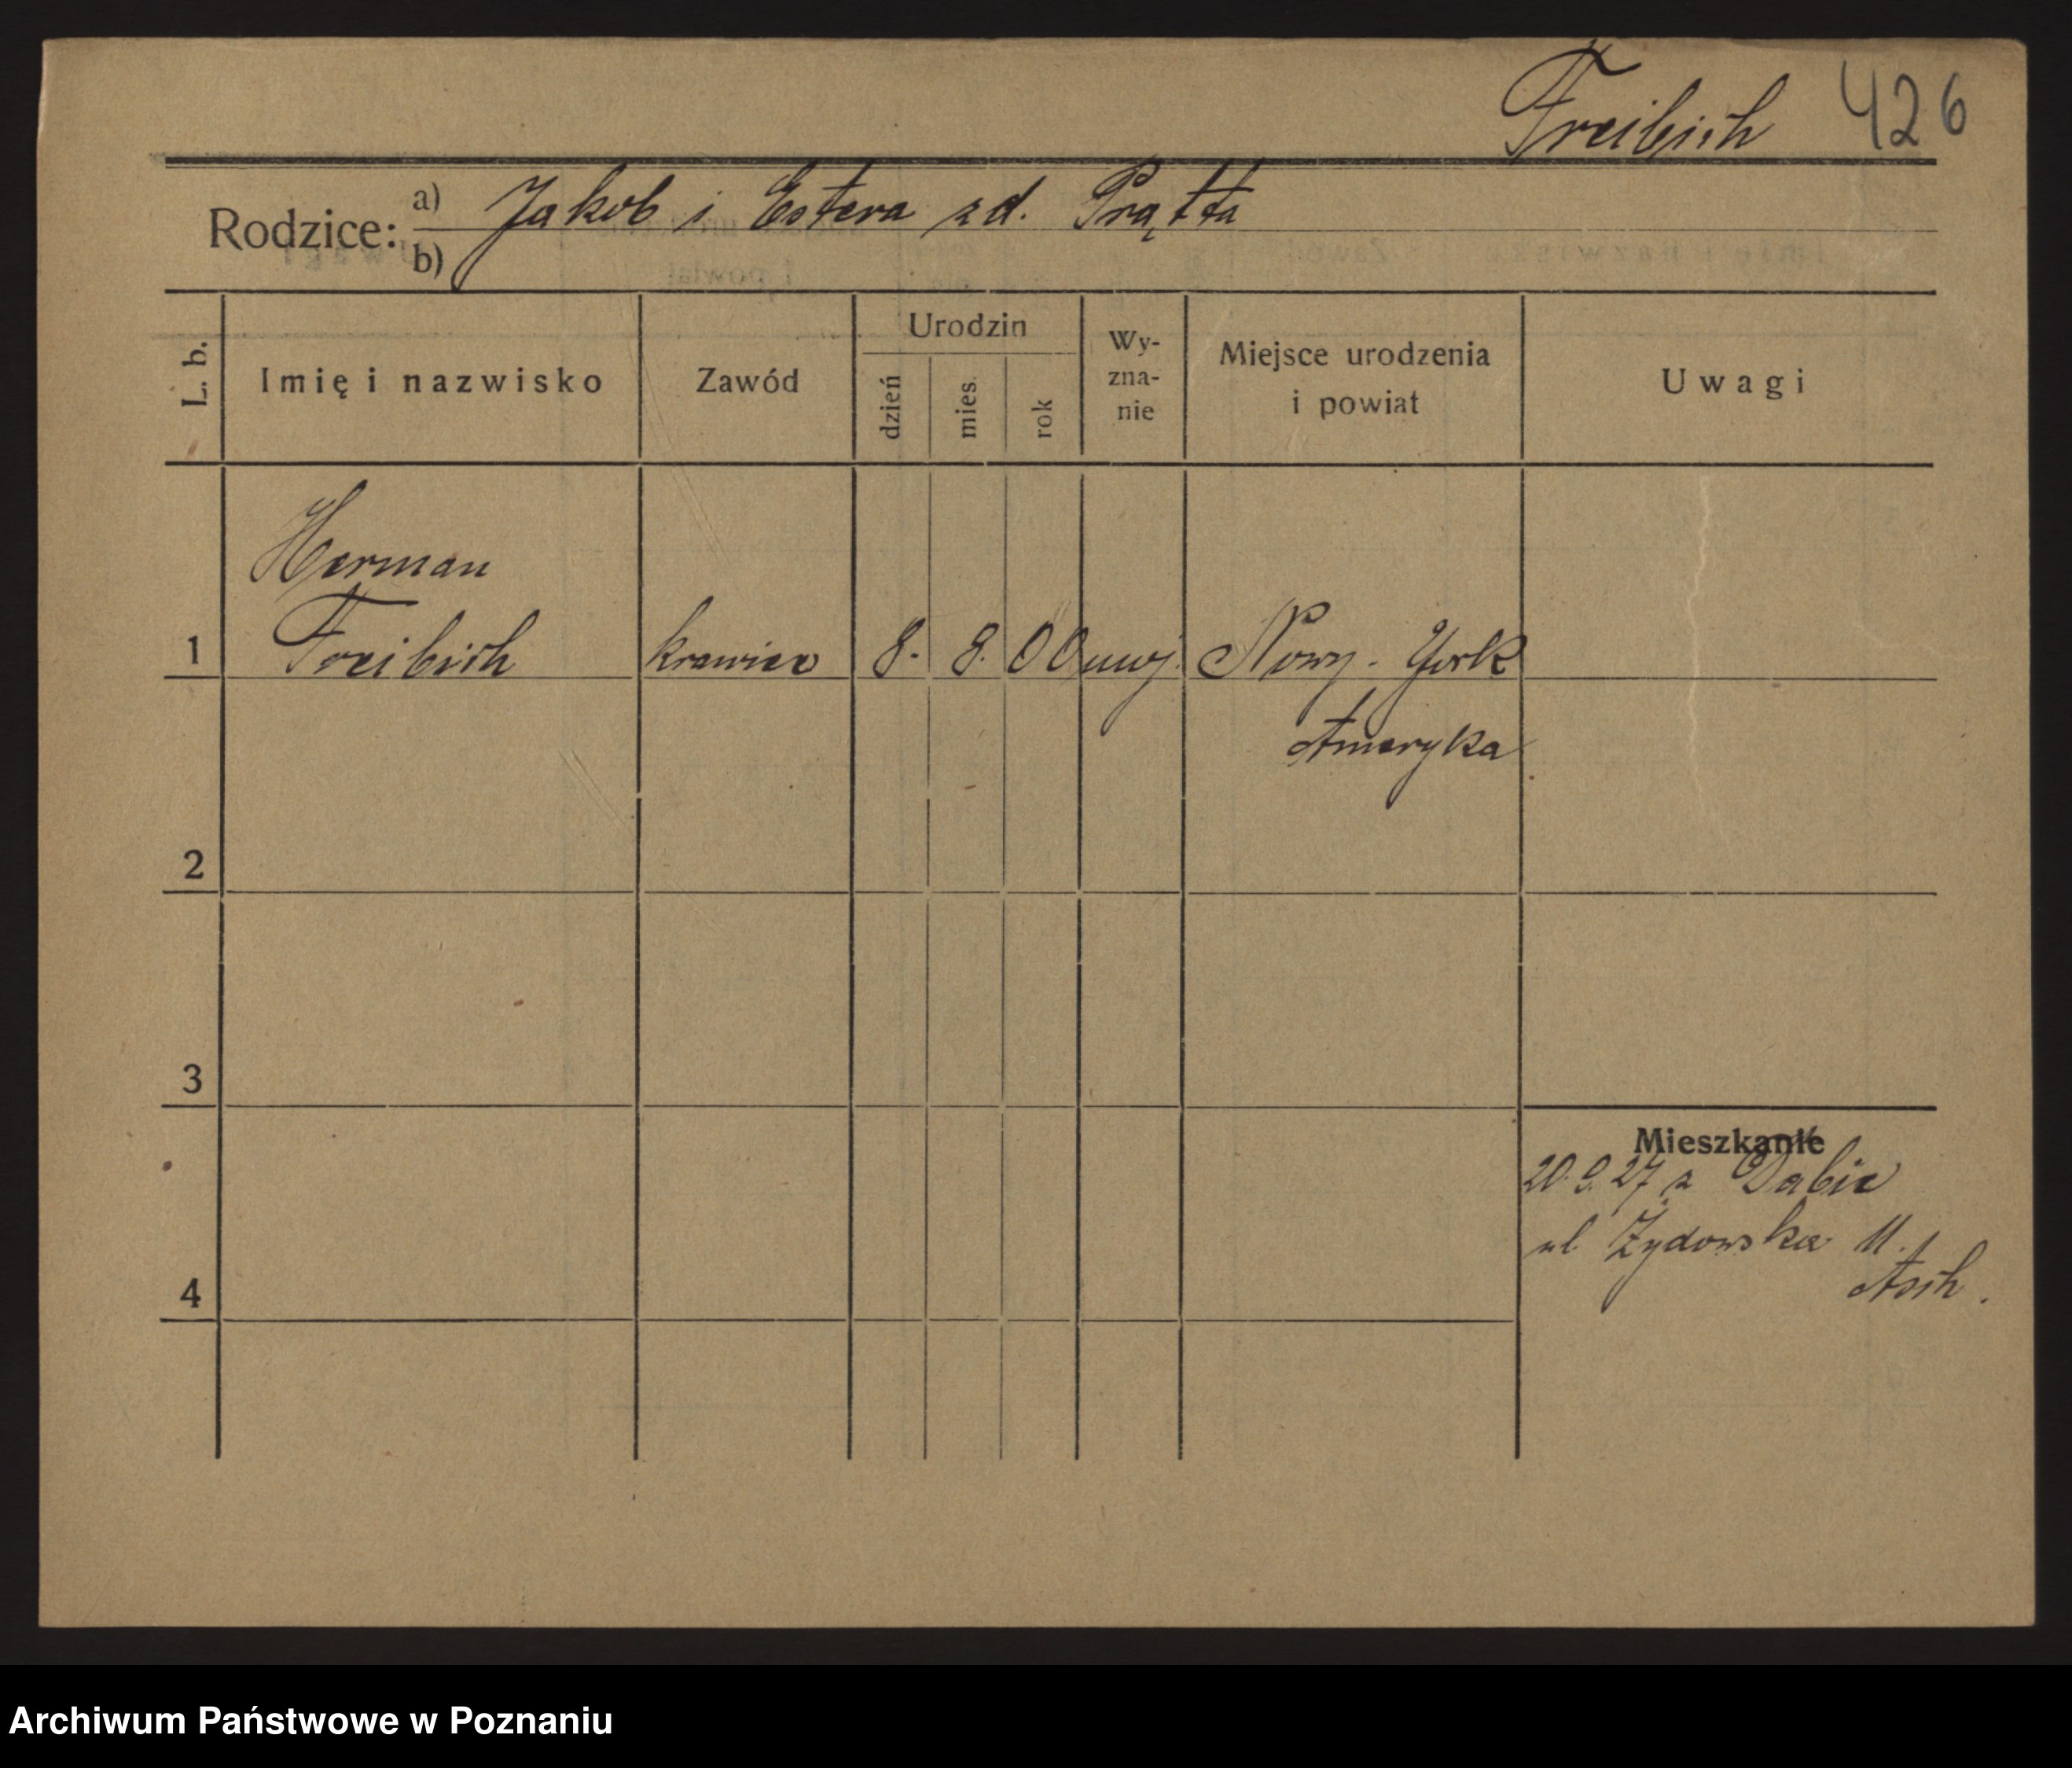 Freibich 426
Rodzice: a) Jakob i Estera zd. Prątta
b)
L. b. Imię i nazwisko Zawód Urodzin dzień mies. rok Wy-zna-nie Miejsce urodzenia i powiat Uwagi
Herman
1 Freibich krawiec 8. 8. 00 moj. Nowy-York
Ameryka
2
3
Mieszkanie
20.9.27 z Dabie
ul. Żydowska 11.
4 Asch.
Archiwum Państwowe w Poznaniu